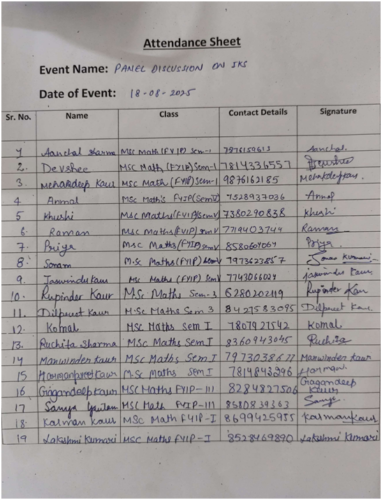 Attendance Sheet
Event Name: PANEL DISCUSSION ON SKS
Date of Event: 18-08-2025
Sr. No. Name Class Contact Details Signature
1 Aanchal Sharma MSC Math (FYIP) Sem-I Aanchal
2. Devshee MSC Math (FYIP) Sem-1 7814336557
3. Mehakdeep Kaur MSC Maths (FYIP) Sem-1 9876163185 Mehakdeep
4 Anmol MSC Maths FYIP 7528437036 Anmol
5 Khushi MSC Maths (FYIP) 7380290838 Khushi
6 Raman MSC Maths (FYIP) 7719403744 Raman
7. Priya MSC Maths (FYIP) Priya
8. Sonam M.Sc Maths (FYIP) 7973623857 Sonam Kumari
9. Jaswinder Kaur MSc Maths (FYIP) 7743066029 Jaswinder Kaur
10. Rupinder Kaur MSc Maths Sem-3 6280202119 Rupinder Kaur
11. Dilpreet Kaur M.Sc Maths Sem 3 8427583095 Dilpreet Kaur
12. Komal MSC Maths Sem I 7807927542 Komal
13. Ruchita Sharma MSC Maths Sem I 8360943045 Ruchita
14 Manwinder Kaur MSC Maths Sem I Manwinder Kaur
15 M.Sc Maths Sem I 7814843296
16 Gagandeep Kaur MSC Maths FYIP-III 8284827506 Gagandeep Kaur
17 Saniya MSC Math FYIP-III 8580839363
18 Karman Kaur MSC Math FYIP-I 8699425955 Karman Kaur
19 Lakshmi Kumari MSC Maths FYIP-I 8528469890 Lakshmi Kumari